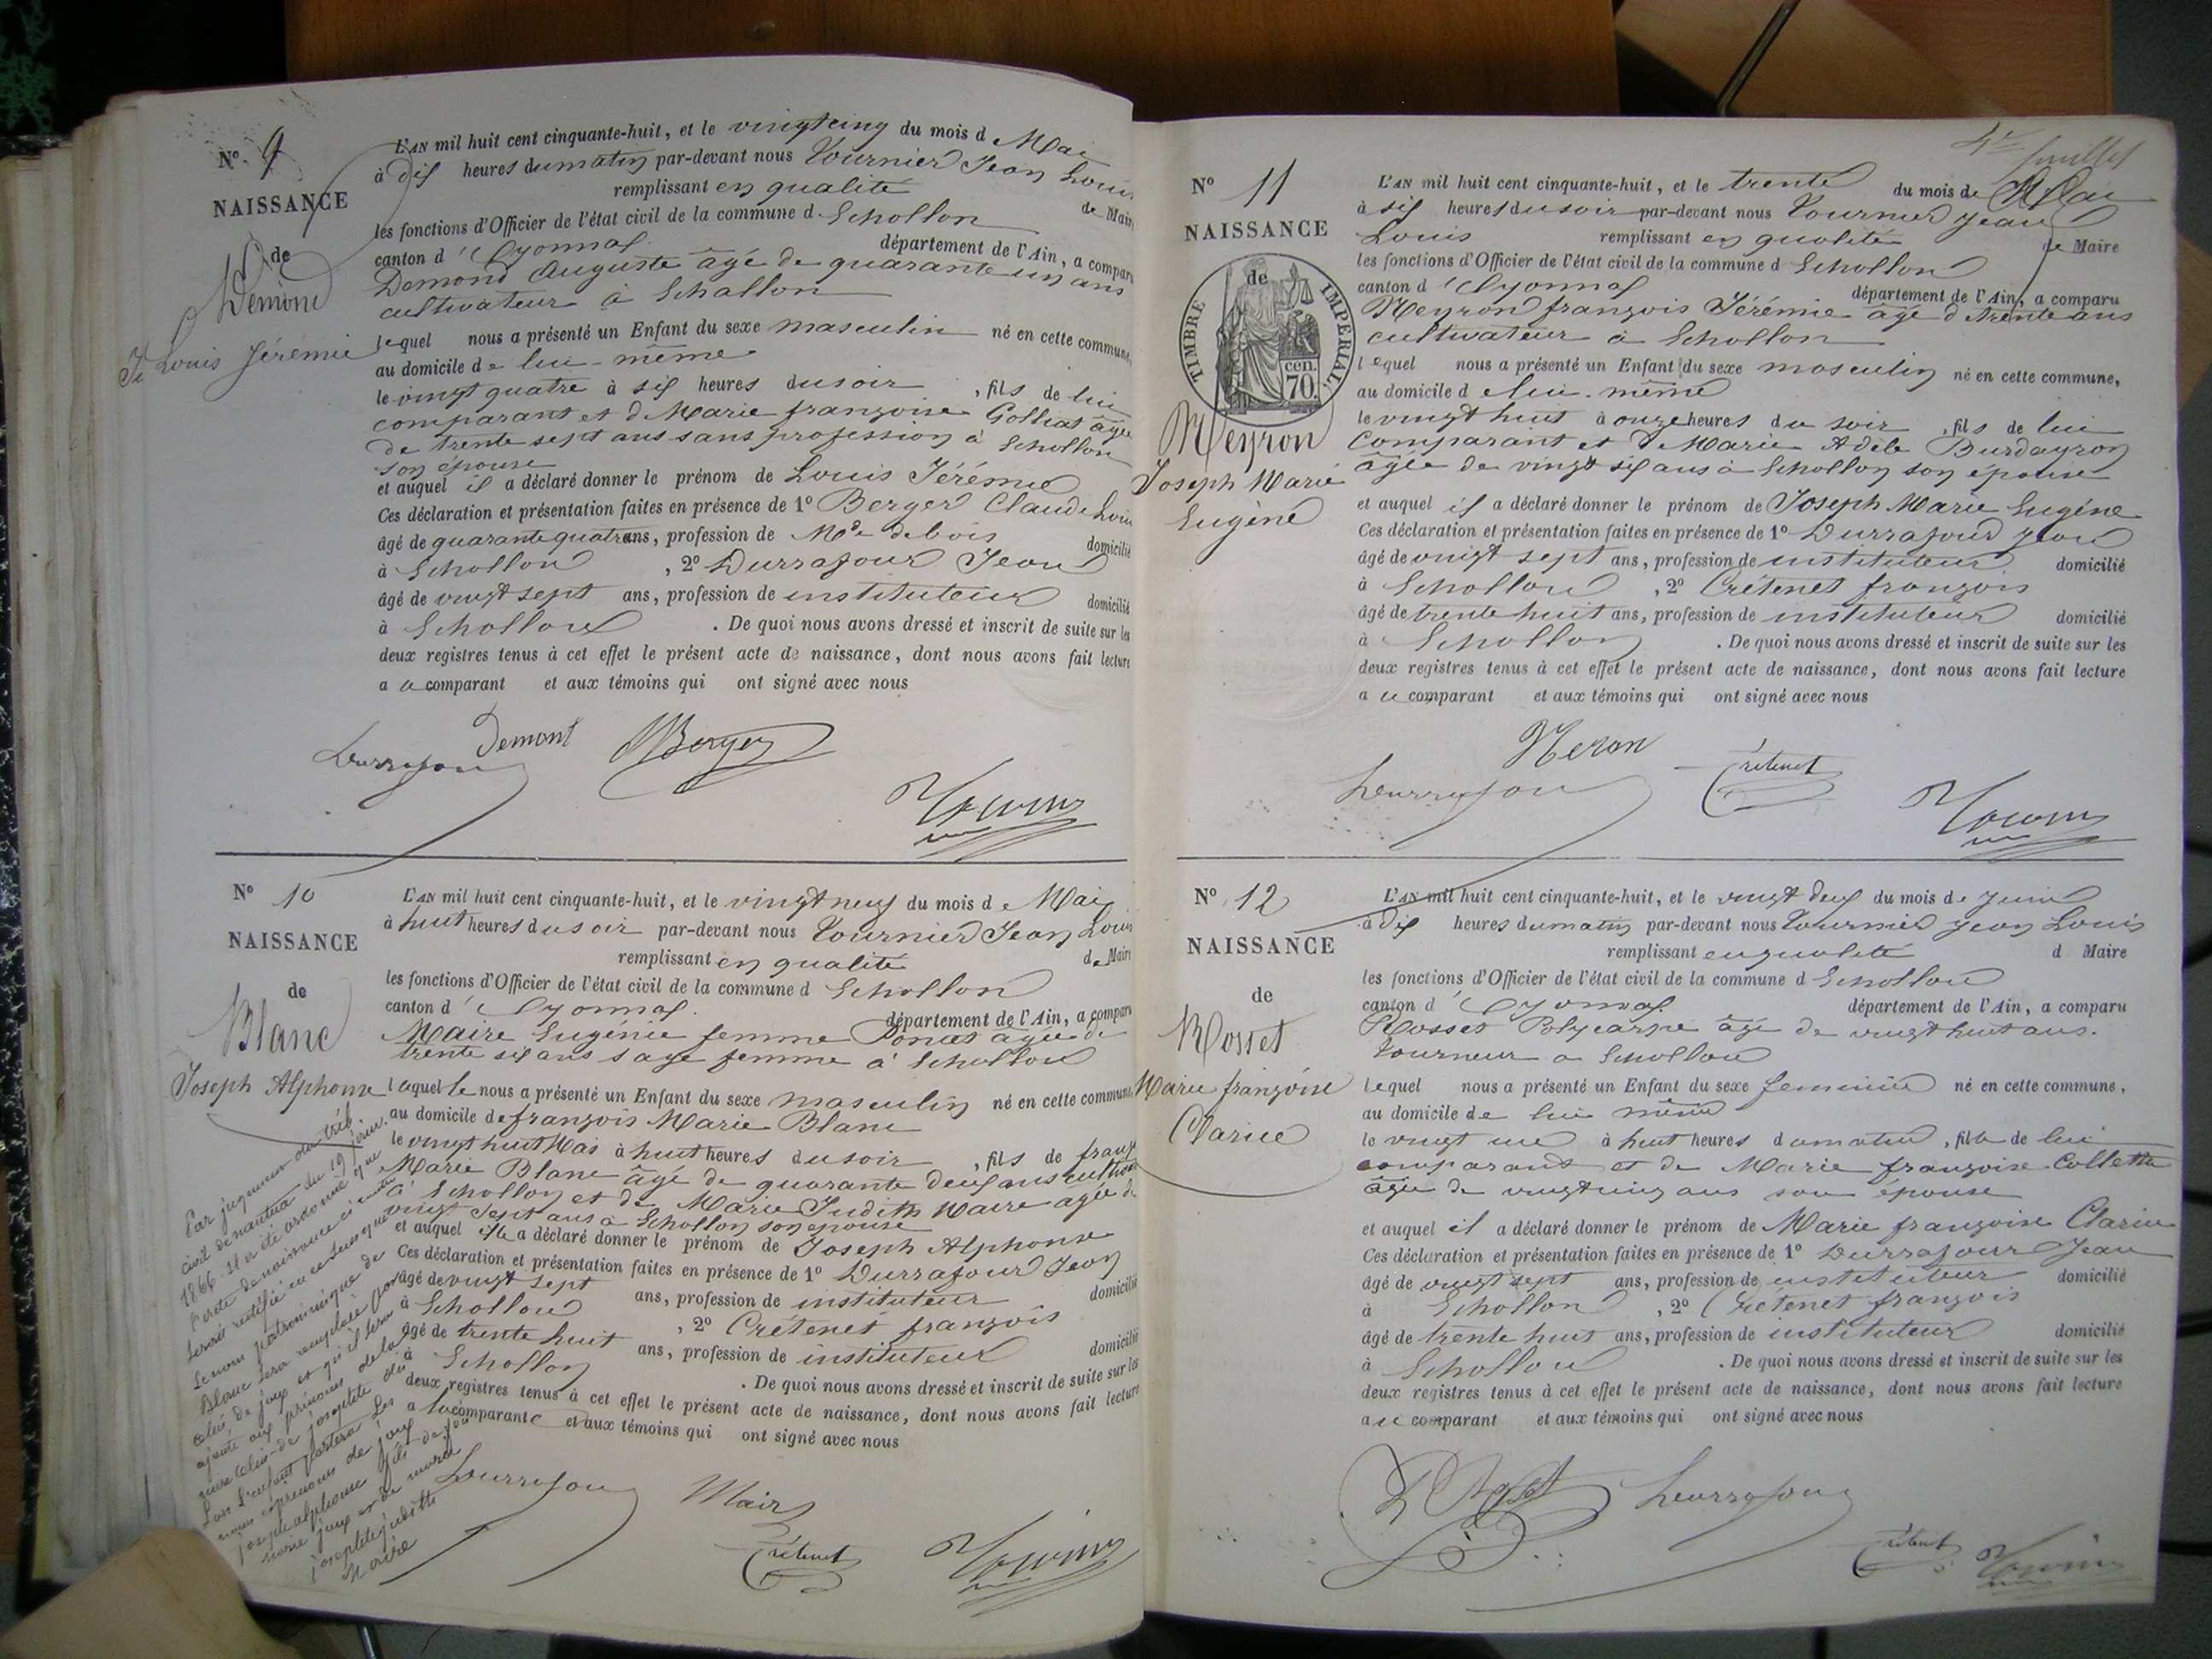 N° 9
NAISSANCE
de
Demond
Louis Jérémie
L'AN mil huit cent cinquante-huit, et le vingt cinq du mois de Mai
à dix heures du matin par-devant nous Tournier Jean Louis
remplissant en qualité de Maire
les fonctions d'Officier de l'état civil de la commune d'Echallon
canton d'Oyonnax département de l'Ain, a comparu
Demond Auguste âgé de quarante un ans
cultivateur à Echallon
lequel nous a présenté un Enfant du sexe masculin né en cette commune,
au domicile de lui-même
le vingt quatre à six heures du soir, fils de lui
comparant et de Marie françoise Golliat âgée
de trente sept ans sans profession à Echallon
son épouse
et auquel il a déclaré donner le prénom de Louis Jérémie
Ces déclaration et présentation faites en présence de 1° Berger Claude Louis
âgé de quarante quatre ans, profession de Md de bois domicilié
à Echallon, 2° Durrafour Jean
âgé de vingt sept ans, profession de instituteur domicilié
à Echallon. De quoi nous avons dressé et inscrit de suite sur les
deux registres tenus à cet effet le présent acte de naissance, dont nous avons fait lecture
au comparant et aux témoins qui ont signé avec nous
Durrafour Demont Berger
Tournier
N° 10
NAISSANCE
de
Blanc
Joseph Alphonse
L'AN mil huit cent cinquante-huit, et le vingt neuf du mois de Mai
à huit heures du soir par-devant nous Tournier Jean Louis
remplissant en qualité de Maire
les fonctions d'Officier de l'état civil de la commune d'Echallon
canton d'Oyonnax département de l'Ain, a comparu
Maire Eugénie femme Poncet âgée de
trente six ans sage femme à Echallon
laquelle nous a présenté un Enfant du sexe masculin né en cette commune
au domicile de françois Marie Blanc
le vingt huit Mai à huit heures du soir, fils de franç
Marie Blanc âgé de quarante deux ans cultiva
à Echallon et de Marie Judith Maire agée de
vingt sept ans à Echallon son épouse
et auquel elle a déclaré donner le prénom de Joseph Alphonse
Ces déclaration et présentation faites en présence de 1° Durrafour Jean
âgé de vingt sept ans, profession de instituteur domicilié
à Echallon, 2° Crétenet françois
âgé de trente huit ans, profession de instituteur domicilié
à Echallon. De quoi nous avons dressé et inscrit de suite sur les
deux registres tenus à cet effet le présent acte de naissance, dont nous avons fait lecture
a la comparante et aux témoins qui ont signé avec nous
Par jugement du trib
civil de nantua du 19
1866 il a été ordonné que
l'acte de naissance ci contre
serait rectifié en ce sens que
le nom patronimique de
Blanc sera remplacé par
celui de joux et qu'il sera
ajouté aux prénoms de la
mère celui de josephte
L'enfant portera les
nom et prénoms de joux
joseph alphonse fils de
marie joux et de marie
josephte judith
Maire
Durrafour Maire
Crétenet Tournier
4e juillet
N° 11
NAISSANCE
de
TIMBRE IMPÉRIAL
70 cen.
Meyron
Joseph Marie
Eugène
L'AN mil huit cent cinquante-huit, et le trente du mois de Mai
à six heures du soir par-devant nous Tournier Jean
Louis remplissant en qualité de Maire
les fonctions d'Officier de l'état civil de la commune d'Echallon
canton d'Oyonnax département de l'Ain, a comparu
Meyron françois Jérémie âgé de trente ans
cultivateur à Echallon
lequel nous a présenté un Enfant du sexe masculin né en cette commune,
au domicile de lui-même
le vingt huit à onze heures du soir, fils de lui
comparant et de Marie Adèle Burdayron
âgée de vingt six ans à Echallon son épouse
et auquel il a déclaré donner le prénom de Joseph Marie Eugène
Ces déclaration et présentation faites en présence de 1° Durrafour Jean
âgé de vingt sept ans, profession de instituteur domicilié
à Echallon, 2° Crétenet françois
âgé de trente huit ans, profession de instituteur domicilié
à Echallon. De quoi nous avons dressé et inscrit de suite sur les
deux registres tenus à cet effet le présent acte de naissance, dont nous avons fait lecture
au comparant et aux témoins qui ont signé avec nous
Meron
Durrafour Crétenet Tournier
N° 12
NAISSANCE
de
Rosset
Marie françoise
Clarice
L'AN mil huit cent cinquante-huit, et le vingt deux du mois de Juin
à dix heures du matin par-devant nous Tournier Jean Louis
remplissant en qualité d Maire
les fonctions d'Officier de l'état civil de la commune d'Echallon
canton d'Oyonnax département de l'Ain, a comparu
Rosset Polycarpe âgé de vingt huit ans.
tourneur à Echallon
lequel nous a présenté un Enfant du sexe feminin né en cette commune,
au domicile de lui même
le vingt un à huit heures du matin, fille de lui
comparant et de Marie françoise Collette
âgée de vingt cinq ans son épouse
et auquel il a déclaré donner le prénom de Marie françoise Clarice
Ces déclaration et présentation faites en présence de 1° Durrafour Jean
âgé de vingt sept ans, profession de instituteur domicilié
à Echallon, 2° Crétenet françois
âgé de trente huit ans, profession de instituteur domicilié
à Echallon. De quoi nous avons dressé et inscrit de suite sur les
deux registres tenus à cet effet le présent acte de naissance, dont nous avons fait lecture
au comparant et aux témoins qui ont signé avec nous
Rosset Durrafour
Crétenet Tournier